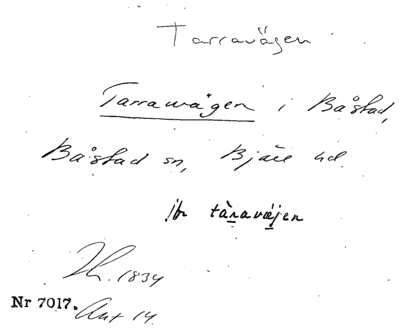 Tarravägen
Tarrawägen i Båstad,
Båstad sn, Bjäre hd.
jfr tàravä̀jen
Th. 1834
Nr 7017. Ant 14.